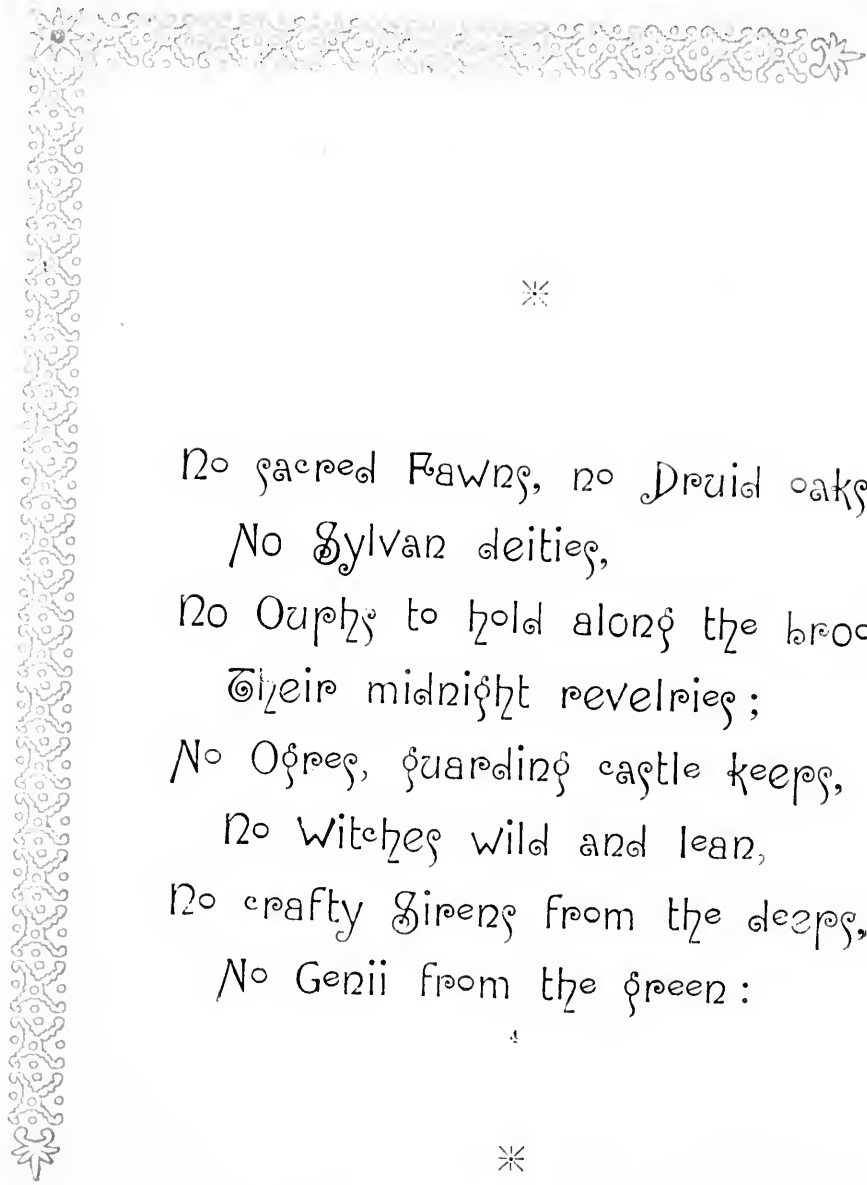 No sacred Fawns, no Druid oaks
No Sylvan deities,
No Ouphs to hold along the
Their midnight revelries ;
No Ogres, guarding castle keeps,
No Witches wild and lean,
No crafty Sirens from the deeps,
No Genii from the green :